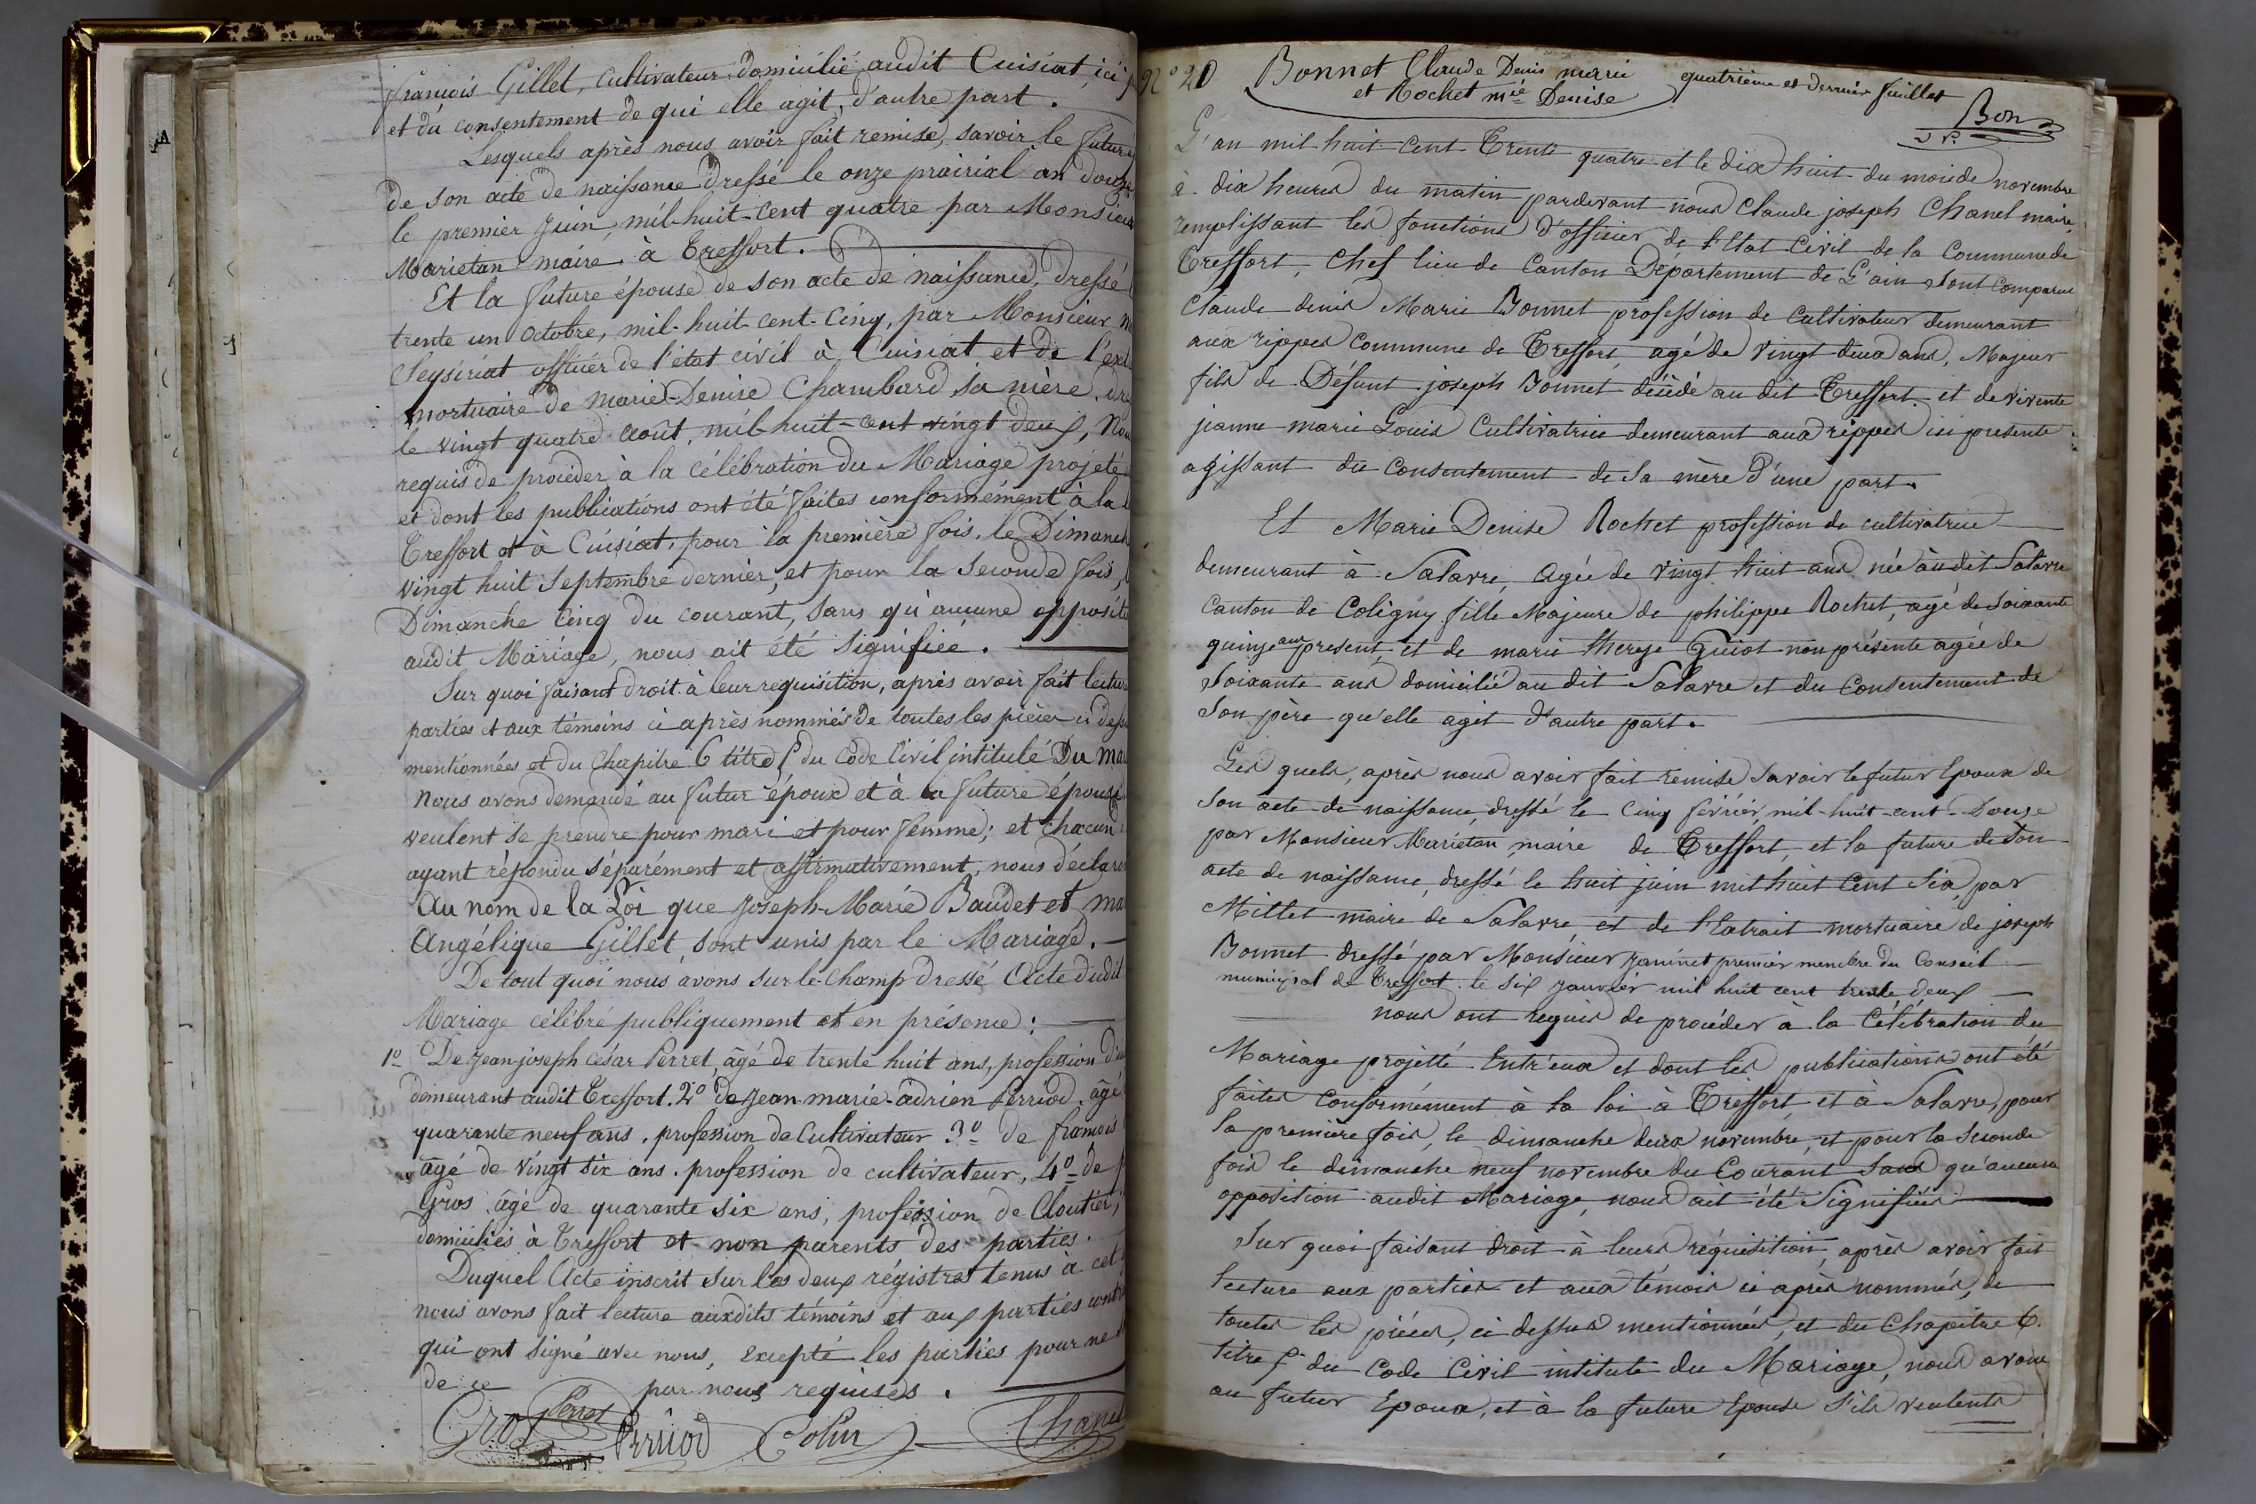 françois Gillet, cultivateur domicilié audit Cuisiat, ici
et du consentement de qui elle agit, d'autre part.
Lesquels après nous avoir fait remise, savoir le futur
de son acte de naissance dressé le onze prairial an douze
le premier juin, mil-huit-cent quatre par Monsieur
Marietan maire à Treffort.
Et la future épouse de son acte de naissance, dressé
trente un octobre, mil-huit-cent-cinq, par Monsieur
Seysiriat officier de l'état civil à Cuisiat et de l'ext
mortuaire de marie-Denise Chambard sa mère,
le vingt quatre août, mil-huit-cent vingt deux, Nou
requis de procéder à la célébration du Mariage projeté
et dont les publications ont été faites conformément à la
Treffort et à Cuisiat, pour la première fois, le Dimanch
vingt huit septembre dernier, et pour la seconde fois,
Dimanche cinq du courant, sans qu'aucune opposit
audit Mariage, nous ait été signifiée.
Sur quoi faisant droit à leur requisition, après avoir fait lectu
parties et aux témoins ci après nommés de toutes les pièces ci dess
mentionnées et du Chapitre 6 titre 5 du Code Civil intitulé Du Ma
Nous avons demandé au futur époux et à la future épouse
veulent se prendre pour mari et pour femme; et chacun
ayant répondu séparément et affirmativement, nous déclaro
Au nom de la Loi que Joseph-Marie Baudet et ma
Angélique Gillet, sont unis par le Mariage.
De tout quoi nous avons sur-le-champ dressé Acte dudit
Mariage célébré publiquement et en présence:
1º De Jean joseph césar Perret, âgé de trente huit ans, profession d'
demeurant audit Treffort. 2º de Jean-marie-adrien Perriod, âgé
quarante neuf ans, profession de Cultivateur 3º de françois
âgé de vingt six ans, profession de cultivateur, 4º de
Gros âgé de quarante six ans, profession de Cloutier,
domiciliés à Treffort et non parents des parties.
Duquel Acte inscrit sur les deux régistres tenus à cet
nous avons fait lecture auxdits témoins et aux parties cont
qui ont signé avec nous, excepté les parties pour ne
de ce par nous requises.
Gros Perret Perriod Colin Chanel
Nº 20 Bonnet Claude Denis marie quatrième et dernier feuillet
et Rochet mie Denise Bon
L'an mil huit cent Trente quatre et le dix huit du mois de novembre
à dix heures du matin pardevant nous Claude joseph Chanel maire,
remplissant les fonctions d'officier de l'Etat Civil de la Commune de
Treffort, Chef lieu de Canton Département de L'ain sont comparus
Claude denis Marie Bonnet profession de Cultivateur demeurant
aux rippes commune de Treffort, agé de vingt deux ans, Majeur
fils de Défunt joseph Bonnet décédé au dit Treffort et de vivente
jeanne marie Louis Cultivatrice demeurant aux rippes ici presente
agissant du consentement de sa mère d'une part.
Et Marie Denise Rochet profession de cultivatrice
demeurant à Salavre, agée de vingt huit ans née audit Salavre
Canton de Coligny fille Majeure de philippe Rochet, agé de soixante
quinze ans present, et de marie thereze Guiot non présente agée de
soixante ans domicilié au dit Salavre et du Consentement de
son père qu'elle agit d'autre part.
Les quels, après nous avoir fait remise savoir le futur Epoux de
son acte de naissance, dressé le cinq février, mil-huit-cent-Douze
par Monsieur Marietan maire de Treffort, et la future de son
acte de naissance, dressé le huit juin mil huit Cent six, par
Millet maire de Salavre, et de l'Extrait mortuaire de joseph
Bonnet dressé par Monsieur Janinet premier membre du Conseil
municipal de Treffort le six Janvier mil huit cent trente deux
nous ont requis de procéder à la Célébration du
Mariage projetté Entr'eux et dont les publications ont été
faites conformément à la loi à Treffort et à Salavre, pour
la première fois, le dimanche deux novembre, et pour la seconde
fois le dimanche neuf novembre du Courant sans qu'aucune
opposition audit Mariage, nous ait été signifiée
Sur quoi faisant droit à leurs réquisition, après avoir fait
lecture aux parties et aux témois ci après nommés, de
toutes les pièces, ci dessus mentionnées, et du Chapitre 6.
titre 5 du Code Civil intitulé du Mariage, nous avons
au futur Epoux, et à la future Epouse s'ils veulents